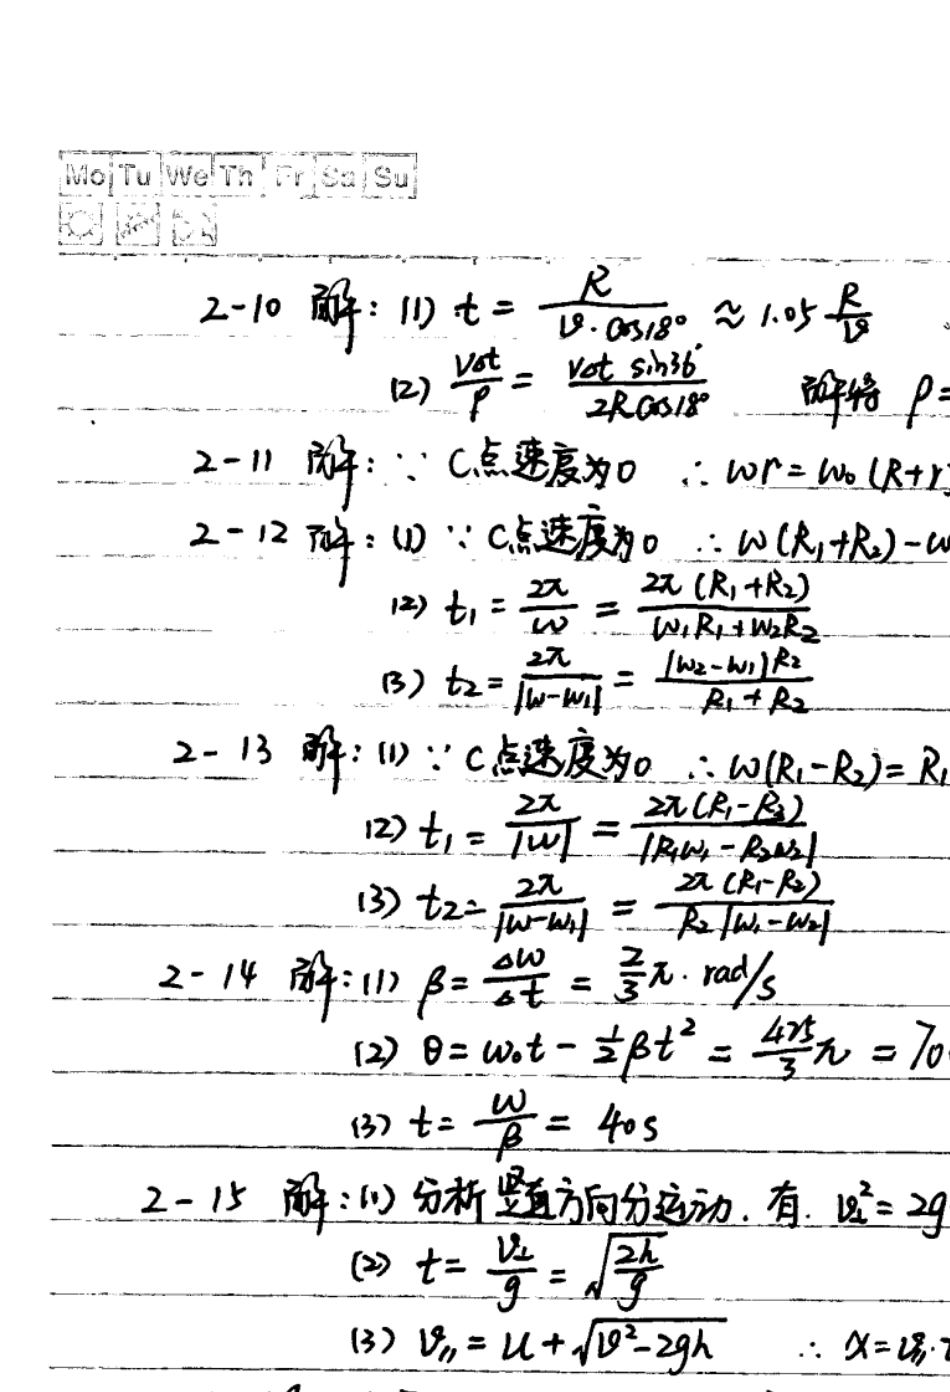 Mo Tu We Th Fr Sa Su
2-10 解: (1) t = R / (v·cos18°) ≈ 1.05 R/v
(2) v₀t/ρ = v₀t sin36° / 2Rcos18° 解得 ρ=
2-11 解: ∵ C点速度为0 ∴ ωr=ω₀(R+r)
2-12 解: (1) ∵ C点速度为0 ∴ ω(R₁+R₂)-ω
(2) t₁ = 2π/ω = 2π(R₁+R₂) / (ω₁R₁+ω₂R₂)
(3) t₂ = 2π/|ω-ω₁| = |ω₂-ω₁|R₂ / (R₁+R₂)
2-13 解: (1) ∵ C点速度为0 ∴ ω(R₁-R₂)=R₁
(2) t₁ = 2π/|ω| = 2π(R₁-R₂) / |R₁ω₁-R₂ω₂|
(3) t₂ = 2π/|ω-ω₁| = 2π(R₁-R₂) / (R₂|ω₁-ω₂|)
2-14 解: (1) β = Δω/Δt = 2/3 π·rad/s
(2) θ = ω₀t - 1/2 βt² = 425/3 π = 70
(3) t = ω/β = 40s
2-15 解: (1) 分析竖直方向分运动. 有. v⊥²=2g
(2) t = v⊥/g = √(2h/g)
(3) v∥ = u+√(v²-2gh) ∴ x=v∥·